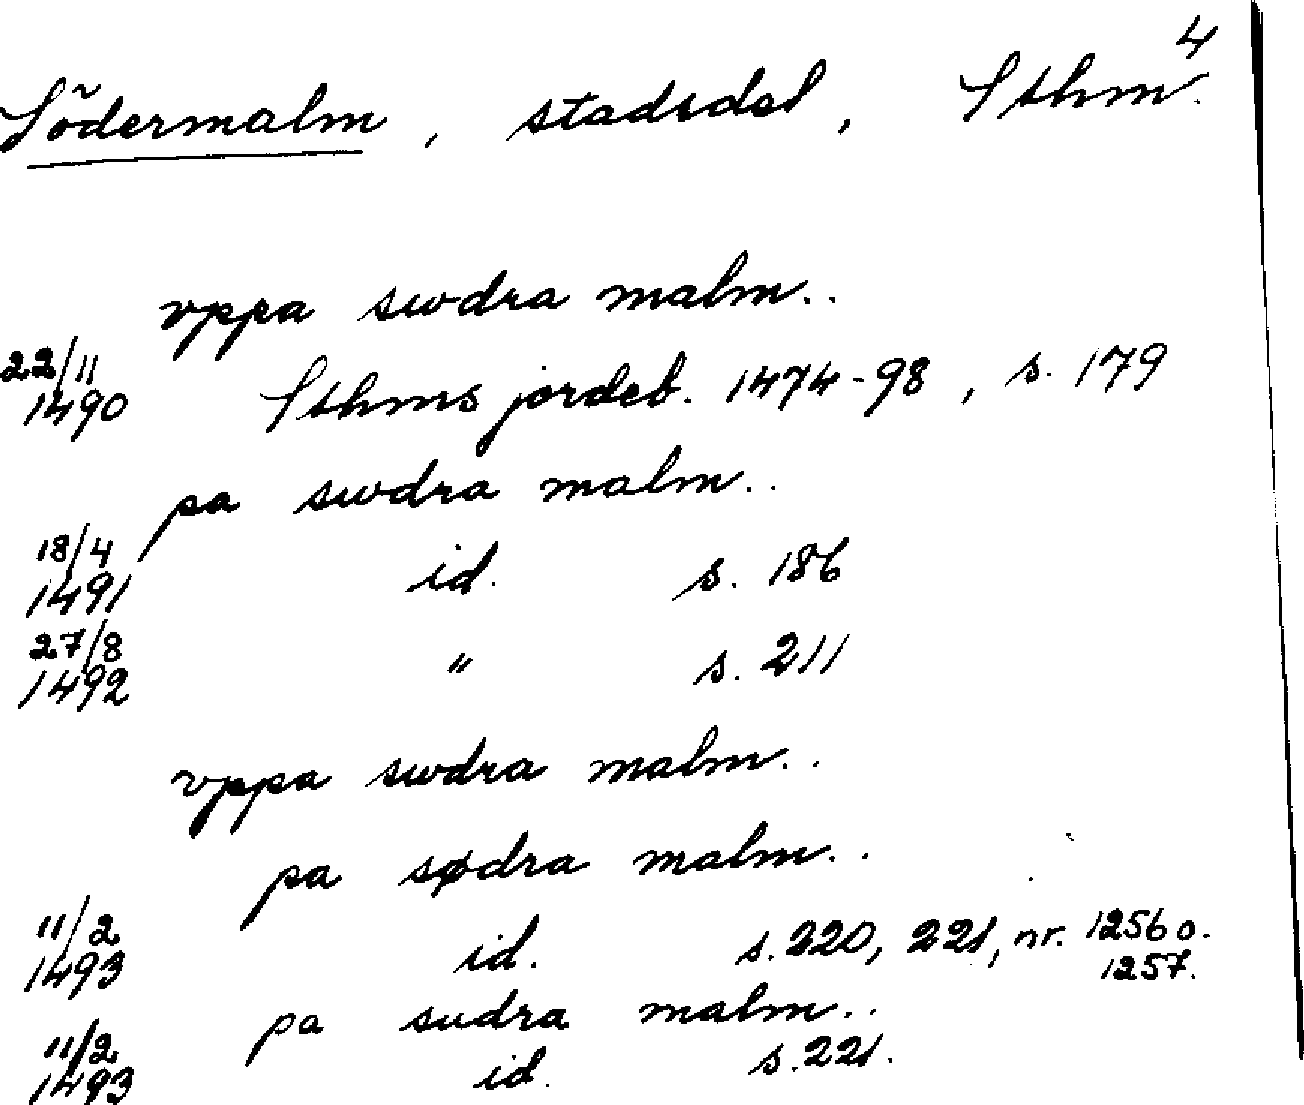 4
Södermalm, stadsdel, Sthm.
vppa swdra malm..
22/11
1490 Sthms jordeb. 1474-98, s. 179
pa swdra malm..
18/4
1491 id. s. 186
27/8
1492 " s. 211
vppa swdra malm..
pa sødra malm..
11/2
1493 id. s. 220, 221, nr. 1256 o.
1257.
pa sudra malm..
11/2
1493 id. s. 221.